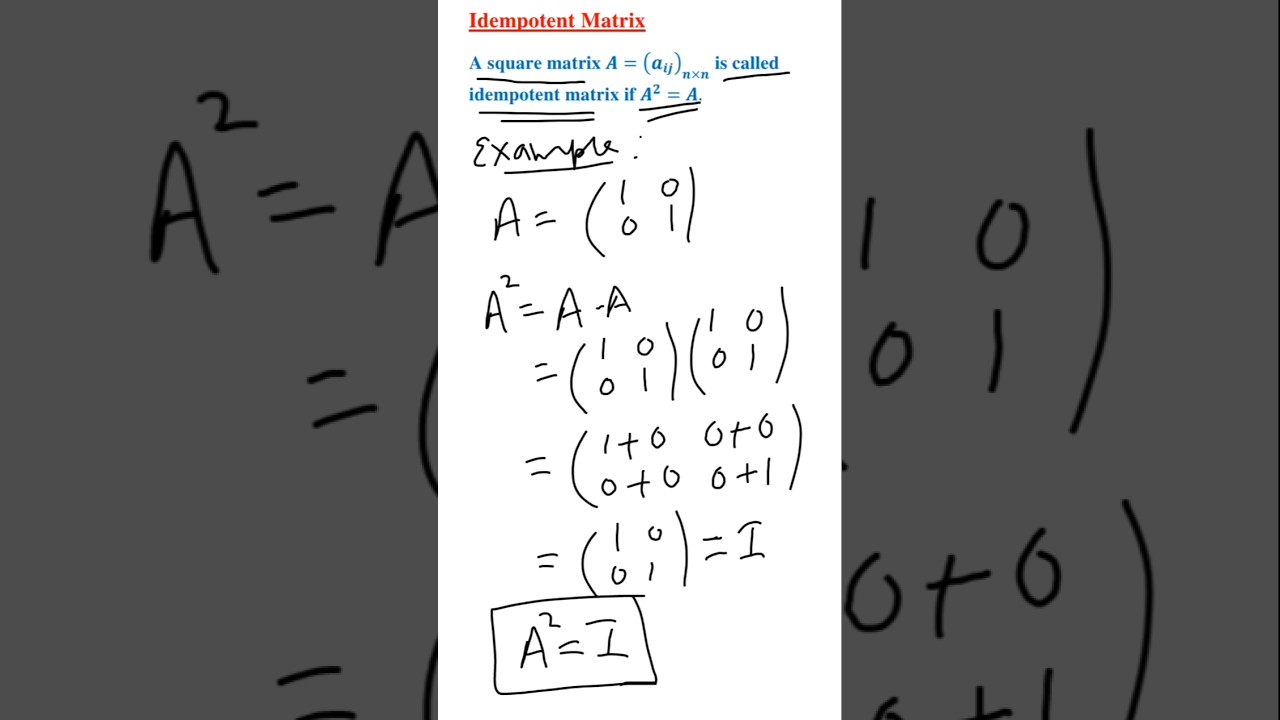 Idempotent Matrix
A square matrix A = (aᵢⱼ)ₙ×ₙ is called
idempotent matrix if A² = A.
Example :
A = ( 1 0
0 1 )
A² = A · A
= ( 1 0
0 1 ) ( 1 0
0 1 )
= ( 1+0 0+0
0+0 0+1 )
= ( 1 0
0 1 ) = I
A² = I